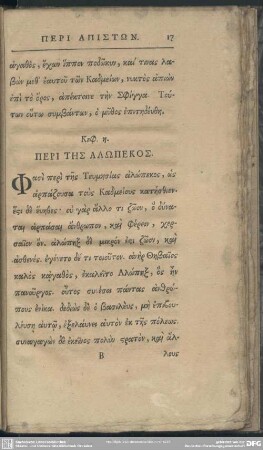 ΠΕΡΙ ΑΠΙΣΤΩΝ. 17
ἀγαθὸς, ἔχων ἵππον ποδώκη, καί τινας λα-
βὼν μεθ' ἑαυτοῦ τῶν Καδμείων, νυκτὸς ἀπιὼν
ἐπὶ τὸ ὄρος, ἀπέκτεινε τὴν Σφίγγα. Τού-
των οὕτω συμβάντων, ὁ μῦθος ἐπενοήθη.
Κεφ. η.
ΠΕΡΙ ΤΗΣ ΑΛΩΠΕΚΟΣ.
Φασὶ περὶ τῆς Τευμησίας ἀλώπεκος, ὡς
ἁρπάζουσα τοὺς Καδμείους κατήσθιεν.
ἔςι δὲ εὔηθες· οὐ γὰρ ἄλλο τι ζῶον, ὃ δύνα-
ται ἁρπάσαι ἄνθρωπον, καὶ φέρειν, χερ-
σαῖον ὄν. ἀλώπηξ δὲ μικρόν ἐςι ζῶον, καὶ
ἀσθενές. ἐγένετο δέ τι τοιοῦτον. ἀνὴρ Θηβαῖος
καλὸς κἀγαθὸς, ἐκαλεῖτο Ἀλώπηξ, ὃς ἦν
πανοῦργος. οὗτος συνέσει πάντας ἀνθρώ-
πους ἐνίκα. δεδιὼς δὲ ὁ βασιλεὺς, μὴ ἐπιβου-
λεύσῃ αὐτῷ, ἐξελαύνει αὐτὸν ἐκ τῆς πόλεως.
συναγαγὼν δὲ ἐκεῖνος πολὺν ςρατὸν, καὶ ἄλ-
B λους